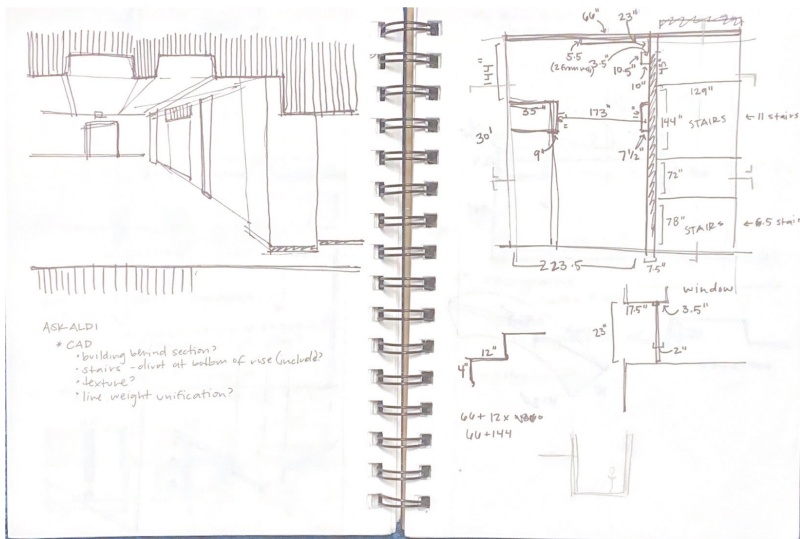 ASK ALDI
* CAD
• building behind section?
• stairs - divot at bottom of rise (include?
• texture?
• line weight unification?
66" 23"
5.5
3.5"
10.5"
10"
144"
129"
35" 173"
144" STAIRS ← 11 stairs
30'
9" 7 1/2"
72"
78" STAIRS
223.5 7.5"
window
17.5" 3.5"
23"
12" 2"
4"
66 + 12 x
66 + 144